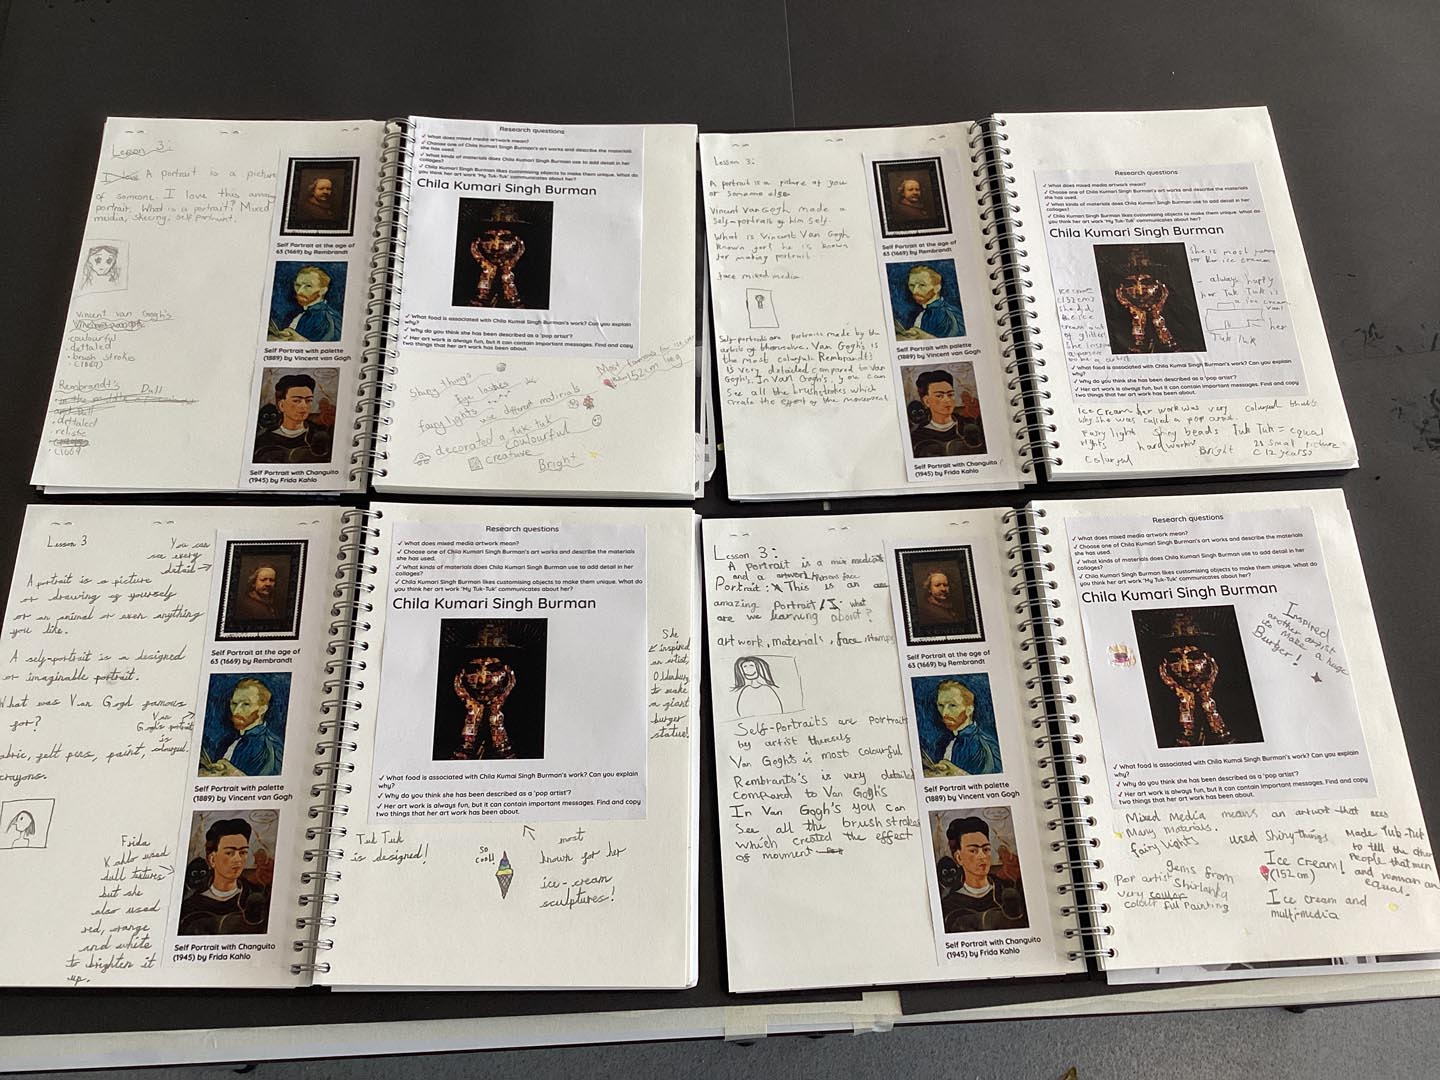 Lesson 3:
A portrait is a picture
of someone I love this amazing
portrait. What is a portrait? Mixed
media,
Vincent van Gogh's
colourful
dettaled
brush strokes
Rembrandt's Dull
dettaled
Self Portrait at the age of
63 (1669) by Rembrandt
Self Portrait with palette
(1889) by Vincent van Gogh
Self Portrait with Changuito
(1945) by Frida Kahlo
Research questions
✓ What does mixed media artwork mean?
✓ Choose one of Chila Kumari Singh Burman's art works and describe the materials
she has used.
✓ What kinds of materials does Chila Kumari Singh Burman use to add detail in her
collages?
✓ Chila Kumari Singh Burman likes customising objects to make them unique. What do
you think her art work 'My Tuk-Tuk' communicates about her?
Chila Kumari Singh Burman
✓ What food is associated with Chila Kumai Singh Burman's work? Can you explain
why?
✓ Why do you think she has been described as a 'pop artist'?
✓ Her art work is always fun, but it can contain important messages. Find and copy
two things that her art work has been about.
Shiny things
fairy lights
different materials
decorated a tuk tuk
coulourful
creative
Bright
152cm
Lesson 3:
A portrait is a picture of you
or someone else.
Vincent Van Gogh made a
Self-portrait of him self.
What is Vincent Van Gogh
known for? he is known
for making portrait.
face mixed media.
Self-portraits are portraits made by the
artists themselves. Van Gogh's is
the most colourful Rembrandt's
is very detailed compared to Van
Gogh's. In Van Gogh's you can
see all the brushstrokes which
create the effect of the movement
Self Portrait at the age of
63 (1669) by Rembrandt
Self Portrait with palette
(1889) by Vincent van Gogh
Self Portrait with Changuito
(1945) by Frida Kahlo
Research questions
✓ What does mixed media artwork mean?
✓ Choose one of Chila Kumari Singh Burman's art works and describe the materials
she has used.
✓ What kinds of materials does Chila Kumari Singh Burman use to add detail in her
collages?
✓ Chila Kumari Singh Burman likes customising objects to make them unique. What do
you think her art work 'My Tuk-Tuk' communicates about her?
Chila Kumari Singh Burman
for her ice cream
always happy
her Tuk Tuk is
a ice cream
van!
her
Tuk Tuk
✓ What food is associated with Chila Kumai Singh Burman's work? Can you explain
why?
✓ Why do you think she has been described as a 'pop artist'?
✓ Her art work is always fun, but it can contain important messages. Find and copy
two things that her art work has been about.
Ice Cream her work was very colourful thats
why she was called a pop artist.
Fairy light Shiny beads Tuk Tuk = equal
rights hard worker Bright
Lesson 3
You can
see every
detail →
A portrait is a picture
or drawing of yourself
or an animal or even anything
you like.
A self-portrait is a designed
or imaginable portrait.
What was Van Gogh famous
for?
Van
Gogh's portrait
is
colourful.
felt pens, paint,
crayons.
Frida
Kahlo used
dull textures
but she
also used
red, orange
and white
to brighten it
up.
Self Portrait at the age of
63 (1669) by Rembrandt
Self Portrait with palette
(1889) by Vincent van Gogh
Self Portrait with Changuito
(1945) by Frida Kahlo
Research questions
✓ What does mixed media artwork mean?
✓ Choose one of Chila Kumari Singh Burman's art works and describe the materials
she has used.
✓ What kinds of materials does Chila Kumari Singh Burman use to add detail in her
collages?
✓ Chila Kumari Singh Burman likes customising objects to make them unique. What do
you think her art work 'My Tuk-Tuk' communicates about her?
Chila Kumari Singh Burman
She
inspired
an artist,
Oldenburg
to make
a giant
burger
statue!
✓ What food is associated with Chila Kumai Singh Burman's work? Can you explain
why?
✓ Why do you think she has been described as a 'pop artist'?
✓ Her art work is always fun, but it can contain important messages. Find and copy
two things that her art work has been about.
Tuk Tuk
is designed!
so
cool!
most
known for her
ice-cream
sculptures!
Lesson 3:
A portrait is a mix media
and a artwork persons face
Portrait: This is an
amazing Portrait/ what
are we learning about?
art work, materials, face, stamps
Self-Portraits are portraits
by artist themself
Van Gogh's is most colourful
Rembrants's is very detailed
compared to Van Gogh's
In Van Gogh's you can
See all the brush strokes
which created the effect
of movment
Self Portrait at the age of
63 (1669) by Rembrandt
Self Portrait with palette
(1889) by Vincent van Gogh
Self Portrait with Changuito
(1945) by Frida Kahlo
Research questions
✓ What does mixed media artwork mean?
✓ Choose one of Chila Kumari Singh Burman's art works and describe the materials
she has used.
✓ What kinds of materials does Chila Kumari Singh Burman use to add detail in her
collages?
✓ Chila Kumari Singh Burman likes customising objects to make them unique. What do
you think her art work 'My Tuk-Tuk' communicates about her?
Chila Kumari Singh Burman
Inspired
another artist
to make a huge
Burger!
✓ What food is associated with Chila Kumai Singh Burman's work? Can you explain
why?
✓ Why do you think she has been described as a 'pop artist'?
✓ Her art work is always fun, but it can contain important messages. Find and copy
two things that her art work has been about.
Mixed Media means an artwork that uses
Many materials.
fairy lights
used Shiny things
Made Tuk-Tuk
to tell the other
People that men
and woman are
equal.
gems from
Shirlanka
Pop artist
very
colour ful Painting
Ice cream!
(152cm)
Ice cream and
multi-media